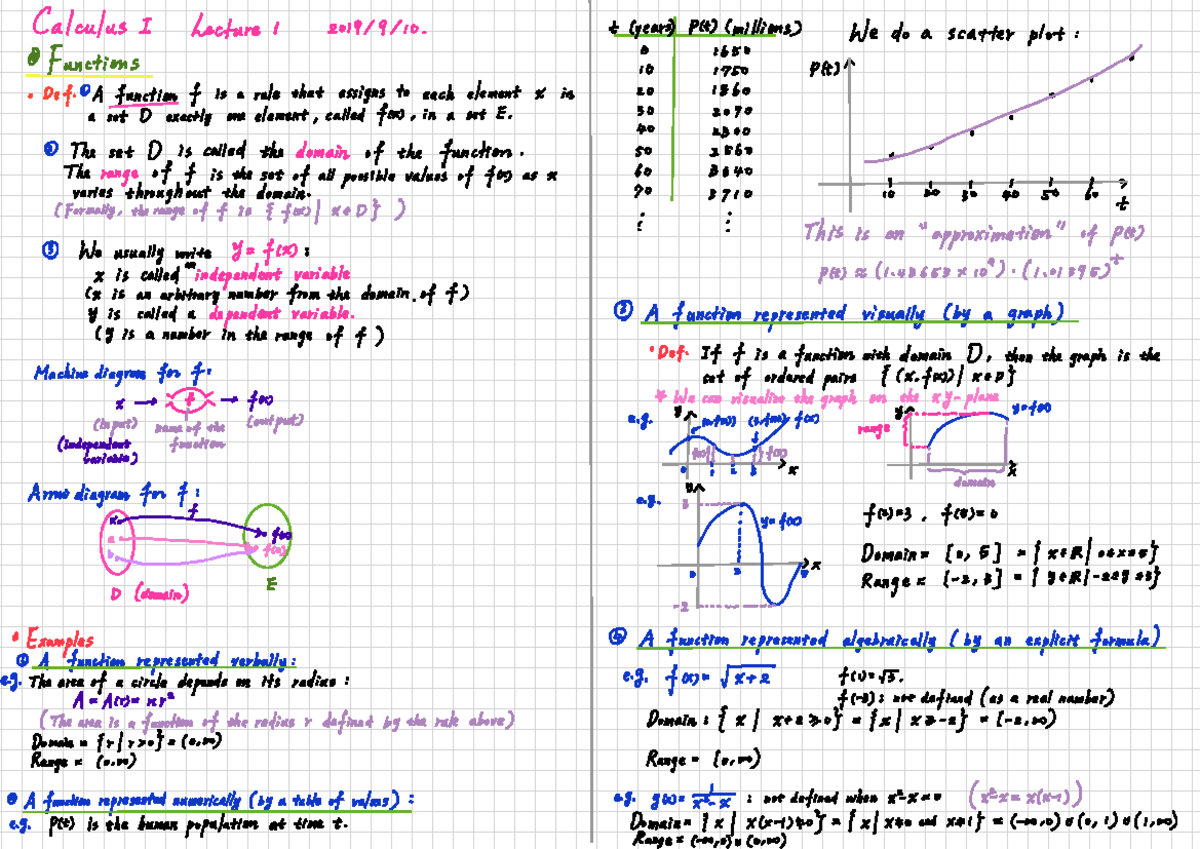 Calculus I Lecture 1 2019/9/10.
Functions
• Def. ① A function f is a rule that assigns to each element x in
a set D exactly one element, called f(x), in a set E.
② The set D is called the domain of the function.
The range of f is the set of all possible values of f(x) as x
varies throughout the domain.
(Formally, the range of f is { f(x) | x ∈ D } )
③ We usually write y = f(x) :
x is called an independent variable
(x is an arbitrary number from the domain of f)
y is called a dependent variable.
(y is a number in the range of f)
Machine diagram for f:
x → f → f(x)
(input) name of the function (output)
(independent variable)
Arrow diagram for f :
f
x f(x)
a f(a)
b
D (domain) E
• Examples
① A function represented verbally :
e.g. The area of a circle depends on its radius :
A = A(r) = πr²
(The area is a function of the radius r defined by the rule above)
Domain = { r | r > 0 } = (0, ∞)
Range = (0, ∞)
A function represented numerically (by a table of values) :
e.g. P(t) is the human population at time t.
t (years) P(t) (millions)
0 1650
10 1750
20 1860
30 2070
40 2300
50 2560
60 3040
70 3710
⋮ ⋮
We do a scatter plot :
P(t)
10 20 30 40 50 60 t
This is an "approximation" of P(t)
③ A function represented visually (by a graph)
• Def. If f is a function with domain D, then the graph is the
set of ordered pairs { (x, f(x)) | x ∈ D }
* We can visualize the graph on the xy-plane
e.g. y f(x)
0 1 2 3 x
y y = f(x)
range
domain
x
e.g. y
3
y = f(x)
0 2 5 x
-2
f(2)=3 , f(5)=0
Domain = [0, 5] = { x ∈ R | 0 ≤ x ≤ 5 }
Range = [-2, 3] = { y ∈ R | -2 ≤ y ≤ 3 }
④ A function represented algebraically (by an explicit formula)
e.g. f(x) = √x+2 f(3) = √5.
f(-3) : not defined (as a real number)
Domain : { x | x+2 ≥ 0 } = { x | x ≥ -2 } = [-2, ∞)
Range = [0, ∞)
e.g. g(x) = 1/x²-x : not defined when x²-x = 0 (x²-x = x(x-1))
Domain = { x | x(x-1) ≠ 0 } = { x | x ≠ 0 and x ≠ 1 } = (-∞, 0) ∪ (0, 1) ∪ (1, ∞)
Range = (-∞, 0) ∪ (0, ∞)